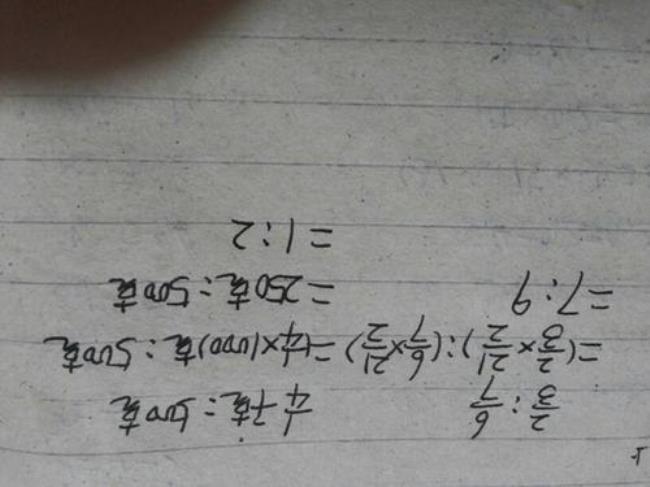 2/3 : 6/7
=(2/3×21/2):(6/7×21/2)
=7:9
1/4千克:500克
=(1/4×1000)克:500克
=250克:500克
=1:2